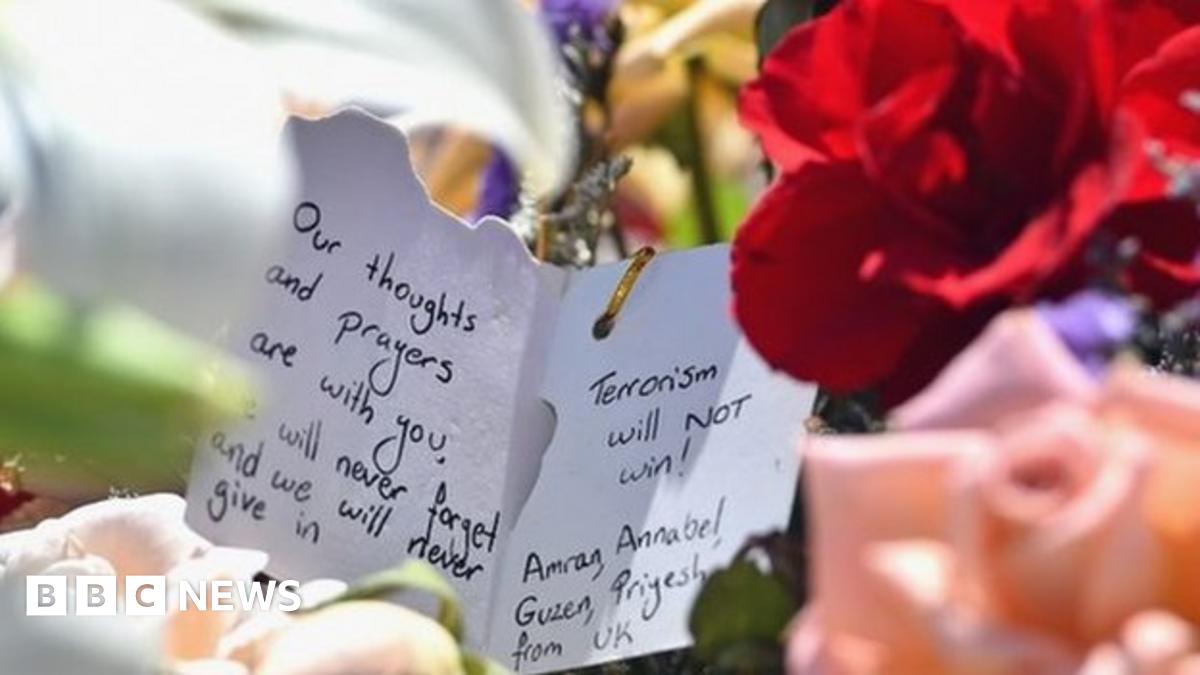 Our thoughts
and prayers
are with you.
will never forget
and we will never
give in
Terrorism
will NOT
win!
Amran, Annabel,
Guzen, Priyesh
from UK
BBC NEWS